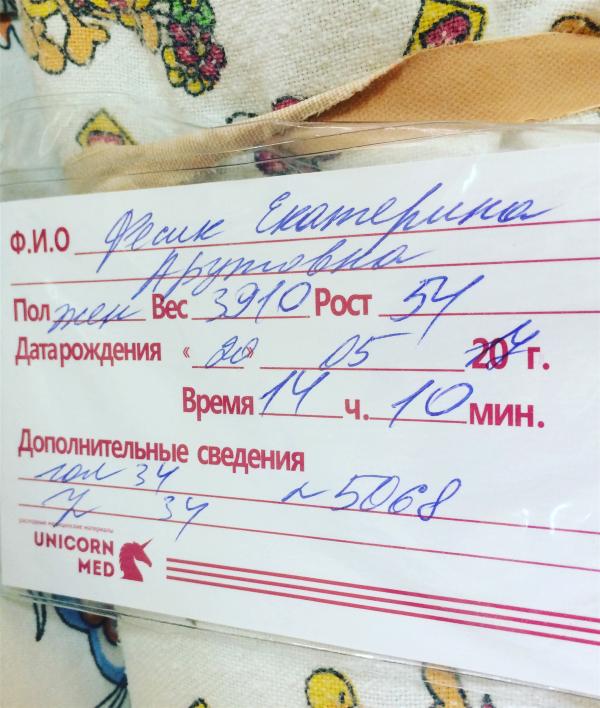 Ф.И.О Фесик Екатерина
Арутовна
Пол жен Вес 3910 Рост 54
Дата рождения « 20 » 05 г.
Время 14 ч. 10 мин.
Дополнительные сведения
гол 34 N5068
34
расходные медицинские материалы
UNICORN
MED